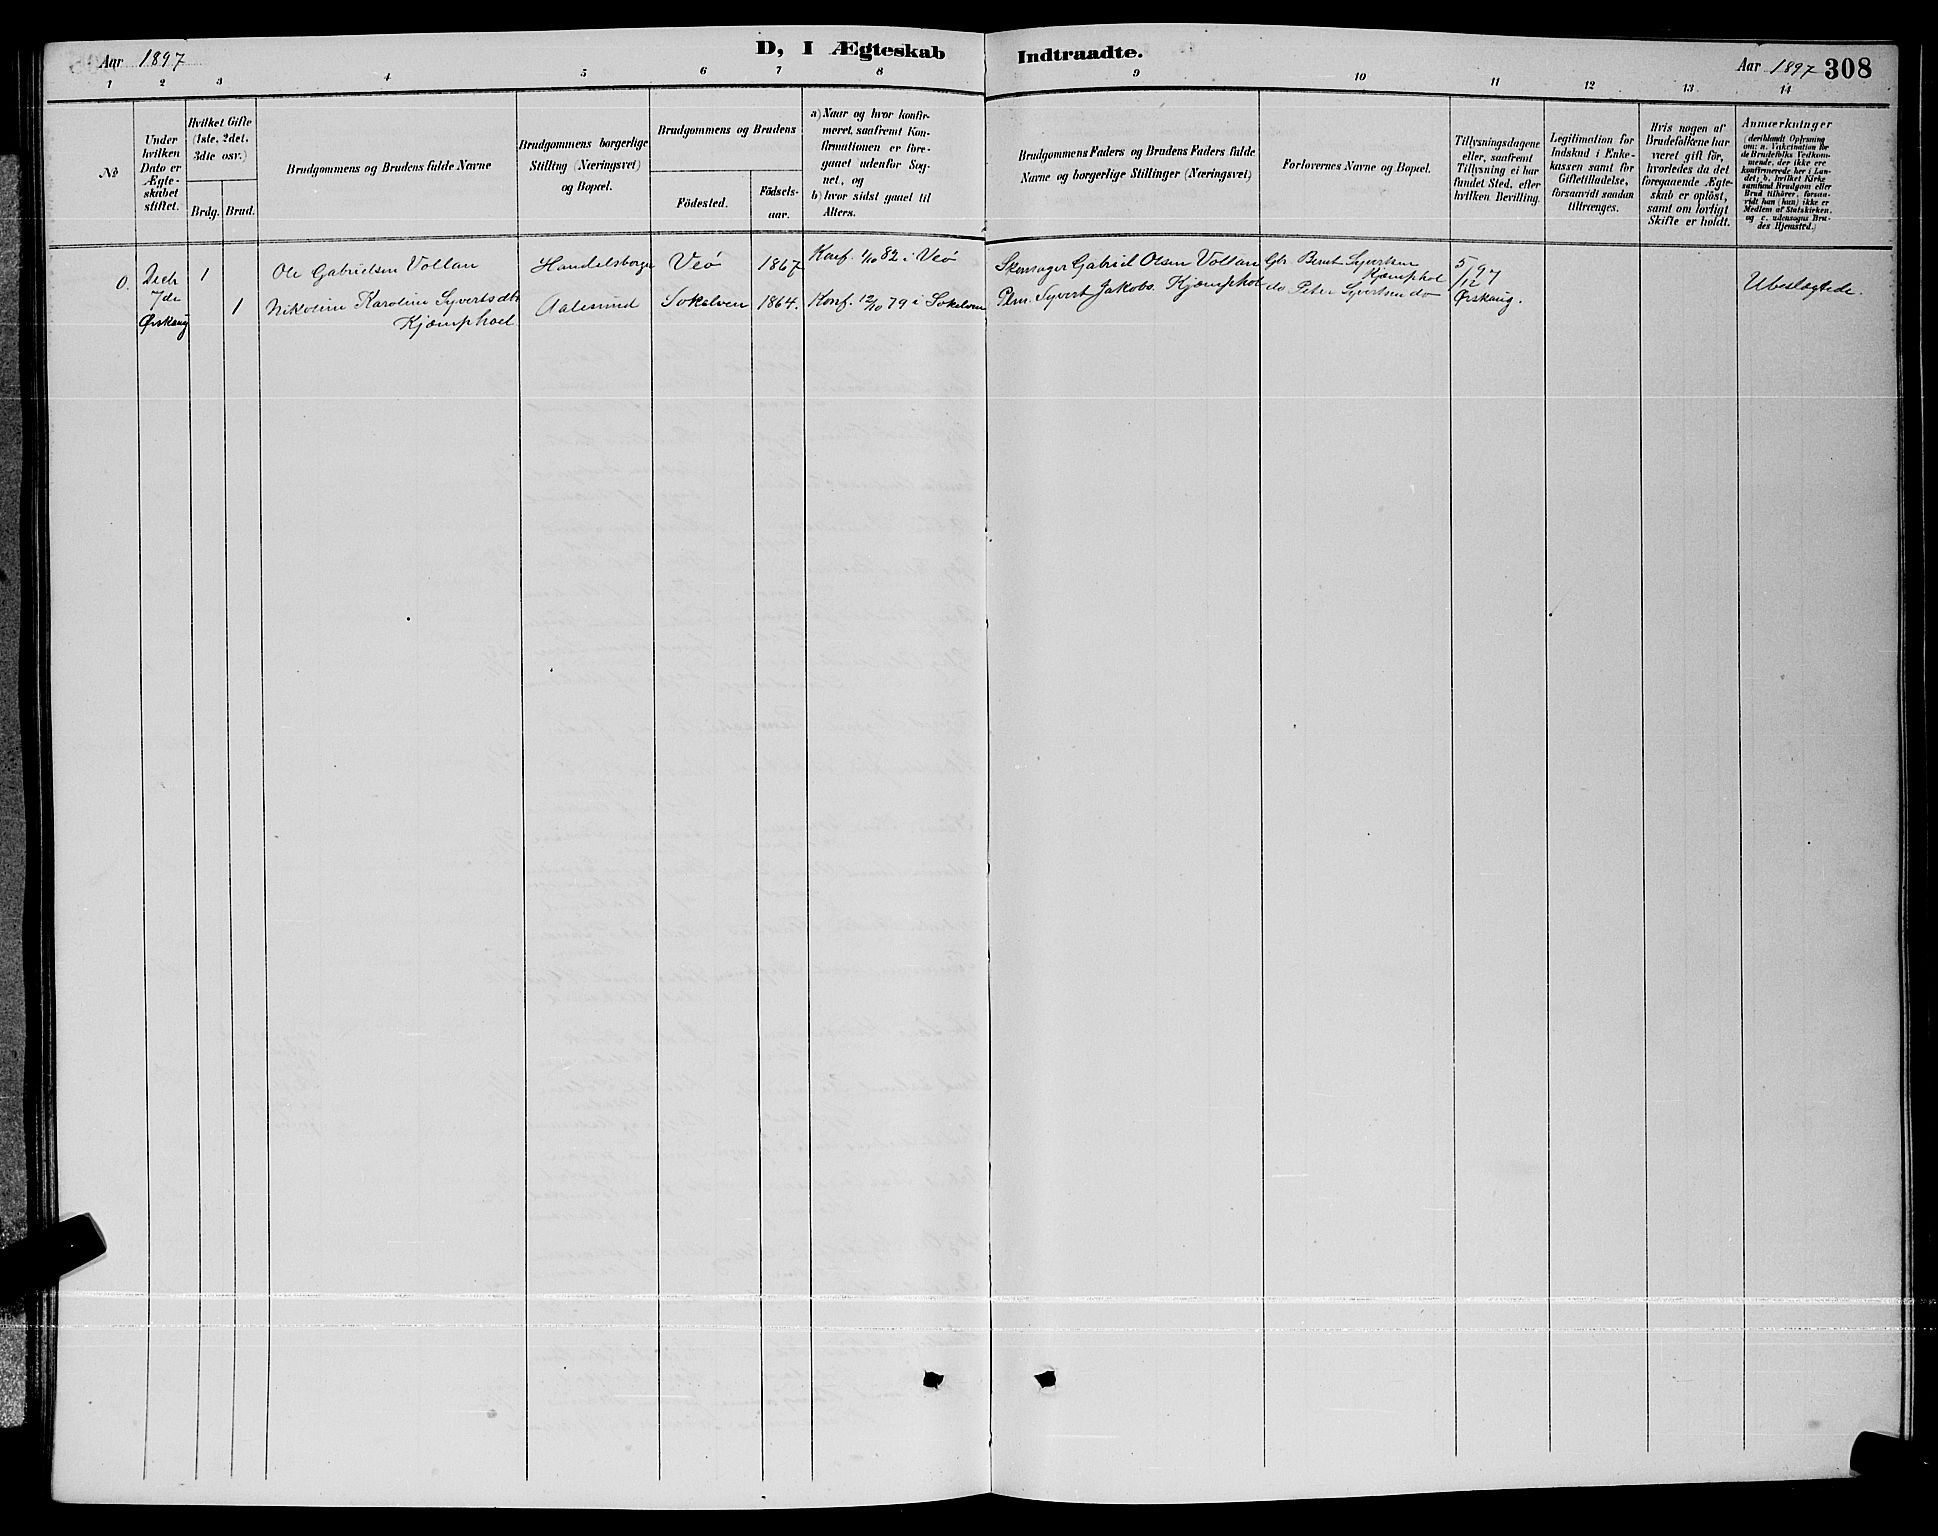 Aar 1897
D, I Ægteskab Indtraadte.
Aar 1897 308
1 2 3 4 5 6 7 8 9 10 11 12 13 14
No
Under hvilken Dato er Ægteskabet stiftet.
Hvilket Gifte (1ste, 2det, 3die osv.)
Brdg. Brud.
Brudgommens og Brudens fulde Navne
Brudgommens borgerlige Stilling (Næringsvei) og Bopæl.
Brudgommens og Brudens
Födested.
Födsels-aar.
a) Naar og hvor konfir-
meret, saafremt Kon-
firmationen er fore-
gaaet udenfor Sog-
net, og
b) hvor sidst gaaet til
Alters.
Brudgommens Faders og Brudens Faders fulde
Navne og borgerlige Stillinger (Næringsvei)
Forlovernes Navne og Bopæl.
Tillysningsdagene
eller, saafremt
Tillysning ei har
fundet Sted, efter
hvilken Bevilling.
Legitimation for
Indskud i Enke-
kassen samt for
Giftetilladelse,
forsaavidt saadan
tiltrænges.
Hvis nogen af
Brudefolkene har
været gift för,
hvorledes da det
foregaaende Ægte-
skab er oplöst,
samt om lovligt
Skifte er holdt.
Anmærkninger
(deriblandt Oplysning
om: a. Vakcination for
de Brudefolks Vedkom-
mende, der ikke ere
konfirmerede her i Lan-
det; b. hvilket Kirke-
samfund Brudgom eller
Brud tilhörer, forsaa-
vidt han (hun) ikke er
Medlem af Statskirken,
og c. udensogns Bru-
des Hjemsted.)
0. Decbr 7de Ørskoug
1 Ole Gabrielsen Vollan Handelsborger Veö 1867 Konf. 1/10 82 i Veö
1 Nikoline Karoline Syvertsdtr Kjæmphoel Aalesund Sökelven 1864. Konf. 12/10 79 i Sökelven
Gabriel Olsen Vollan
Plm. Syvert Jakobs. Kjæmphol
Gbr. Bernt Syvertsen Kjæmphol
do Peter Syvertsen do
5/12 97
Ørskoug.
Ubeslegtede.